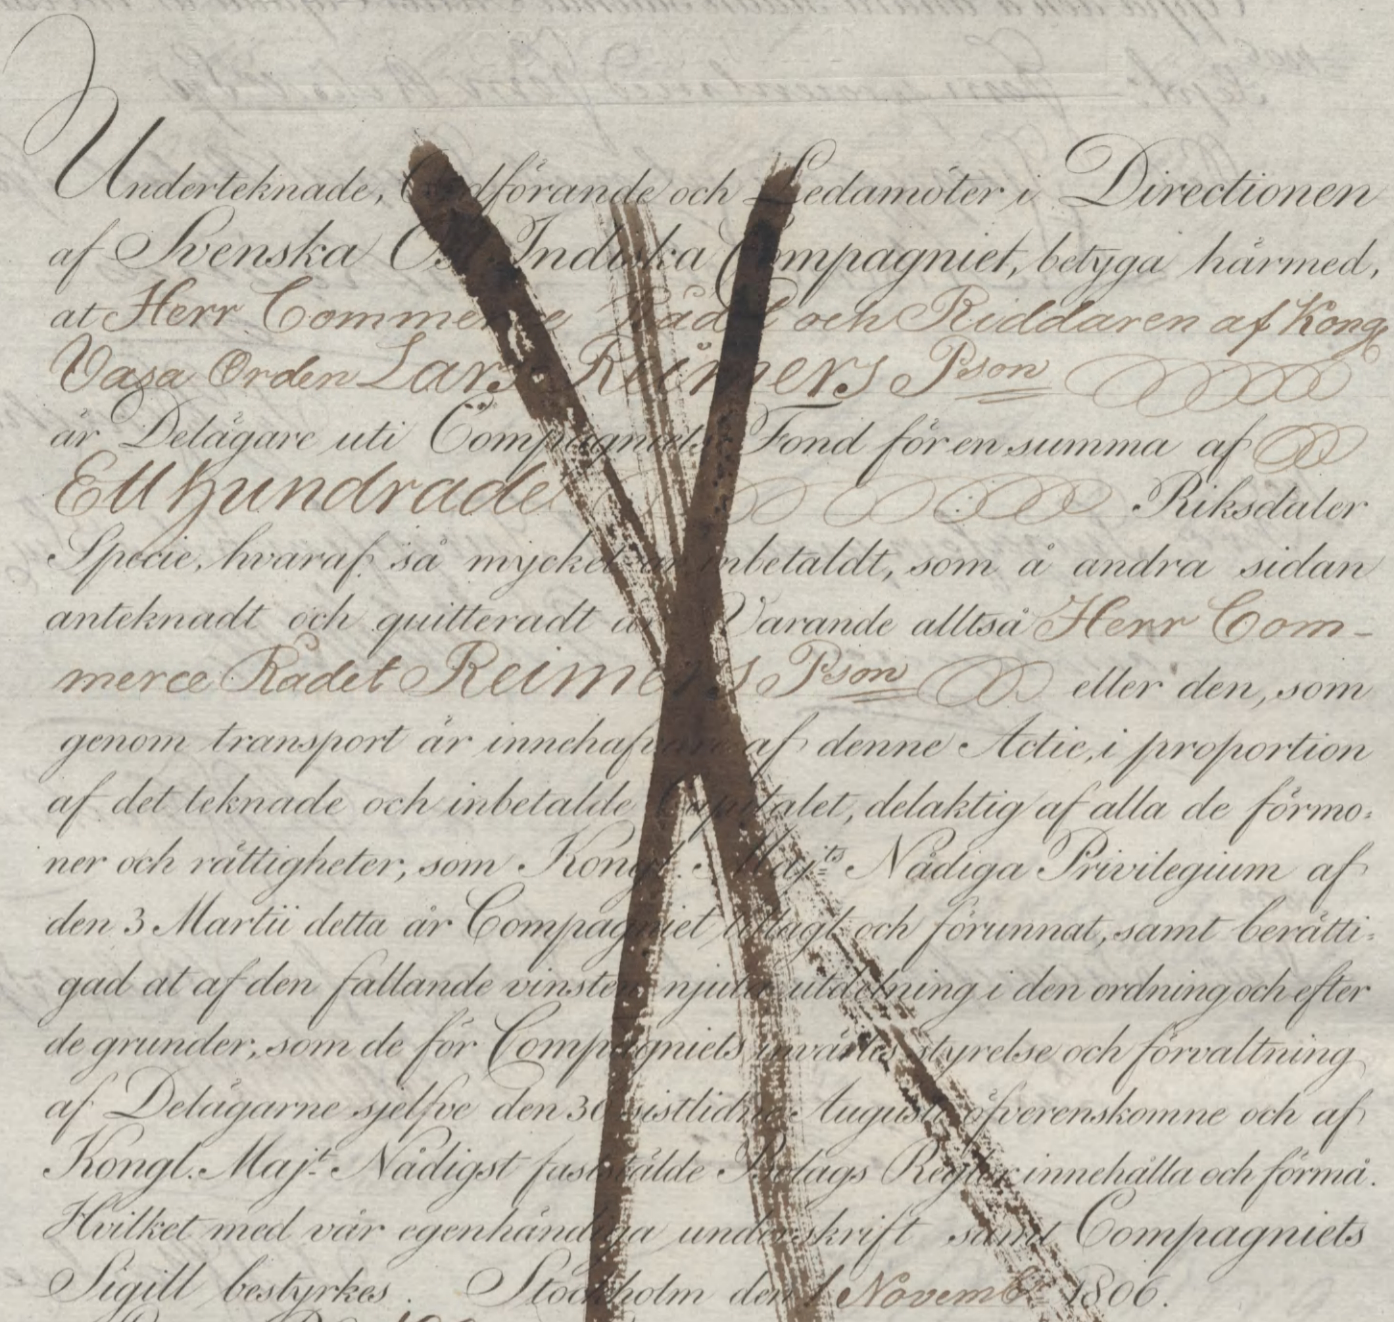 Underteknade, Ordförande och Ledamöter i Directionen
af Svenska Ost Indiska Compagniet, betyga härmed,
at Herr Commerce Rådet och Riddaren af Kongl
Vasa Orden Lars Reimers Pson
är Delägare uti Compagniets Fond för en summa af
Ett hundrade Riksdaler
Specie, hvaraf så mycket är inbetaldt, som å andra sidan
anteknadt och quitteradt är. Varande alltså Herr Com-
merce Rådet Reimers Pson eller den, som
genom transport är innehafvare af denne Actie, i proportion
af det teknade och inbetalde Capitalet, delaktig af alla de förmo:
ner och rättigheter, som Kongl. Maj:ts Nådiga Privilegium af
den 3 Martii detta år Compagniet tillagt och förunnat, samt berätti:
gad at af den fallande vinsten njuta utdelning i den ordning och efter
de grunder, som de för Compagniets invärtes styrelse och förvaltning
af Delägarne sjelfve den 30 sistlidne Augusti öfverenskomne och af
Kongl. Maj:t Nådigst fastställde Bolags Regler innehålla och förmå.
Hvilket med vår egenhändiga underskrift samt Compagniets
Sigill bestyrkes. Stockholm den 1 Novemb: 1806.